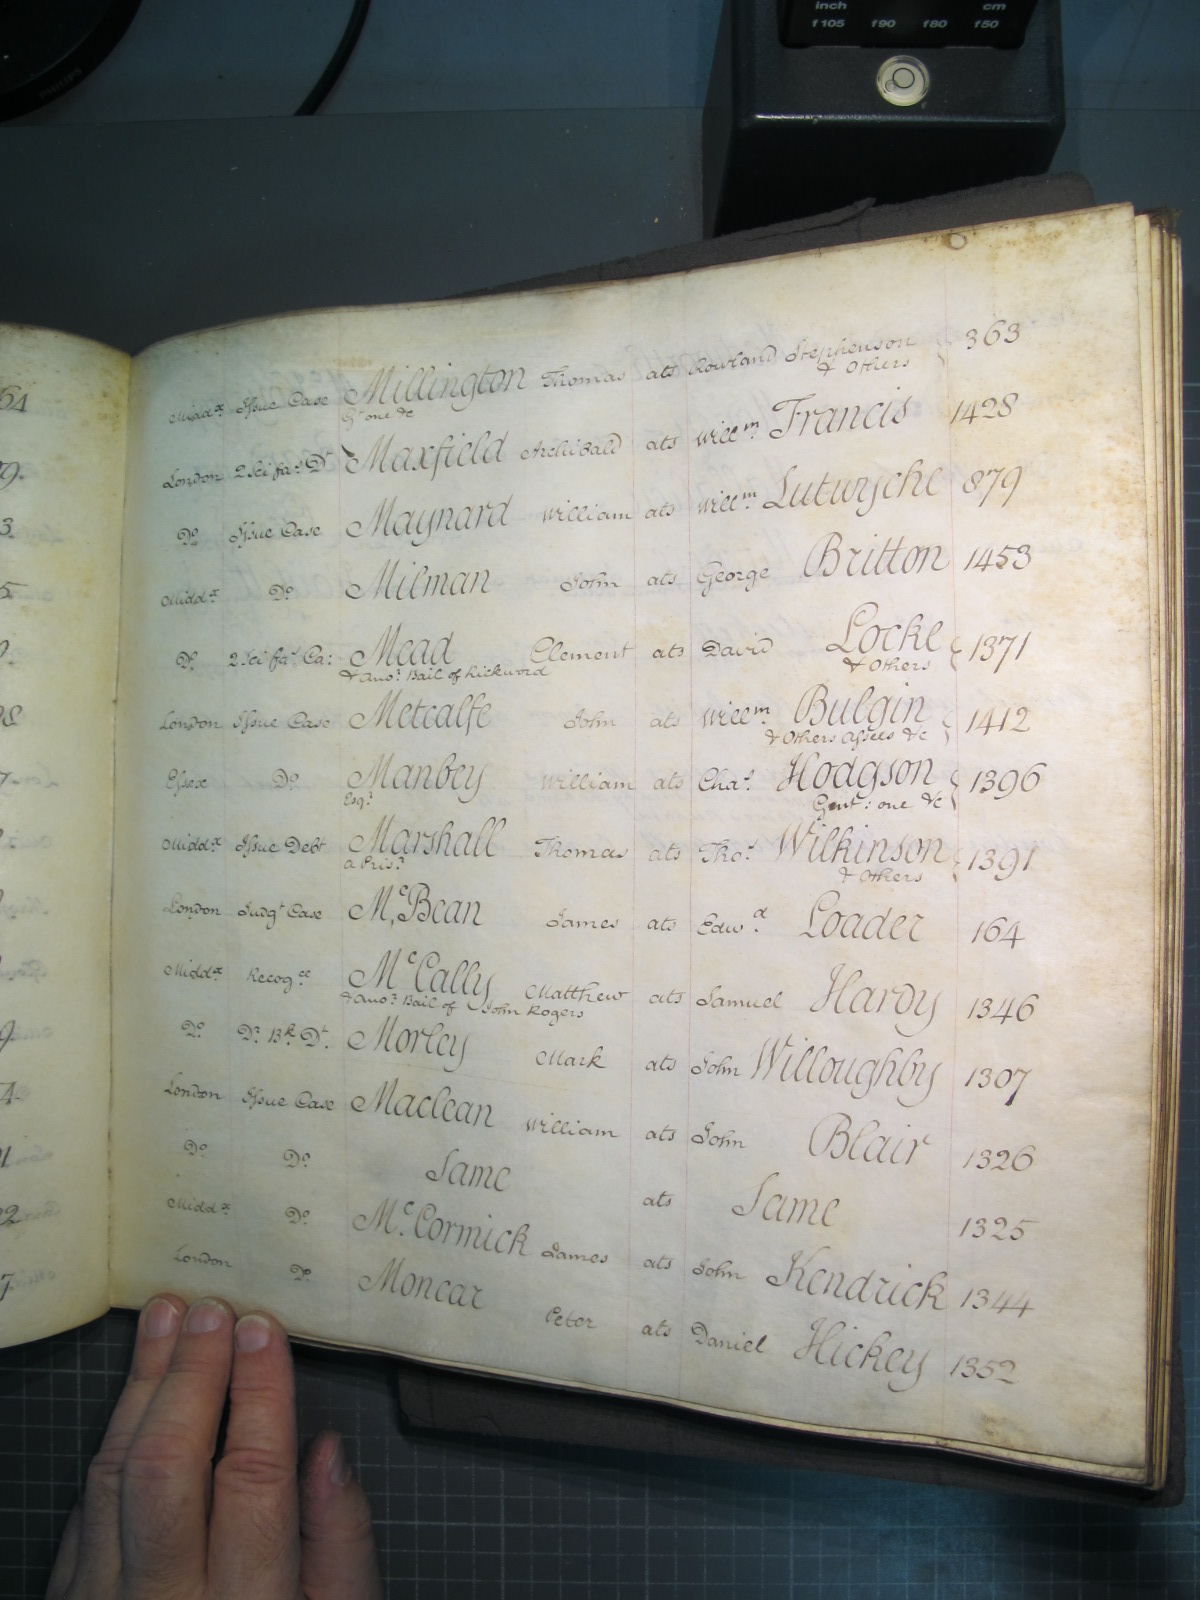 inch cm
f105 f90 f80 f50
PHILIPS
Midd.x Issue Case Millington Thomas ats Rowland Stephenson 363
G.t one &c & Others
London 2 Sci fa.s D.t Maxfield Archibald ats Will.m Francis 1428
D.o Issue Case Maynard William ats Will.m Lutwyche 879
Midd.x D.o Milman John ats George Britton 1453
D.o 2 Sci fa.s Ca: Mead Clement ats David Locke 1371
& ano.r Bail of Rickword & Others
London Issue Case Metcalfe John ats Will.m Bulgin 1412
& Others Assees &c
Essex D.o Manbey William ats Cha.s Hodgson 1396
Esq.r Gent: one &c
Midd.x Issue Debt Marshall Thomas ats Tho.s Wilkinson 1391
a Pris.r & Others
London Judg.t Case M.cBean James ats Edw.d Loader 164
Midd.x Recog.ce M.cCally Matthew ats Samuel Hardy 1346
& ano.r Bail of John Rogers
D.o D.r B.k D.t Morley Mark ats John Willoughby 1307
London Issue Case Maclean William ats John Blair 1326
D.o D.o Same ats Same 1325
Midd.x D.o M.cCormick James ats John Kendrick 1344
London D.o Moncar Peter ats Daniel Hickey 1352
64
9.
3
5
28
7
9
4
1
22
7